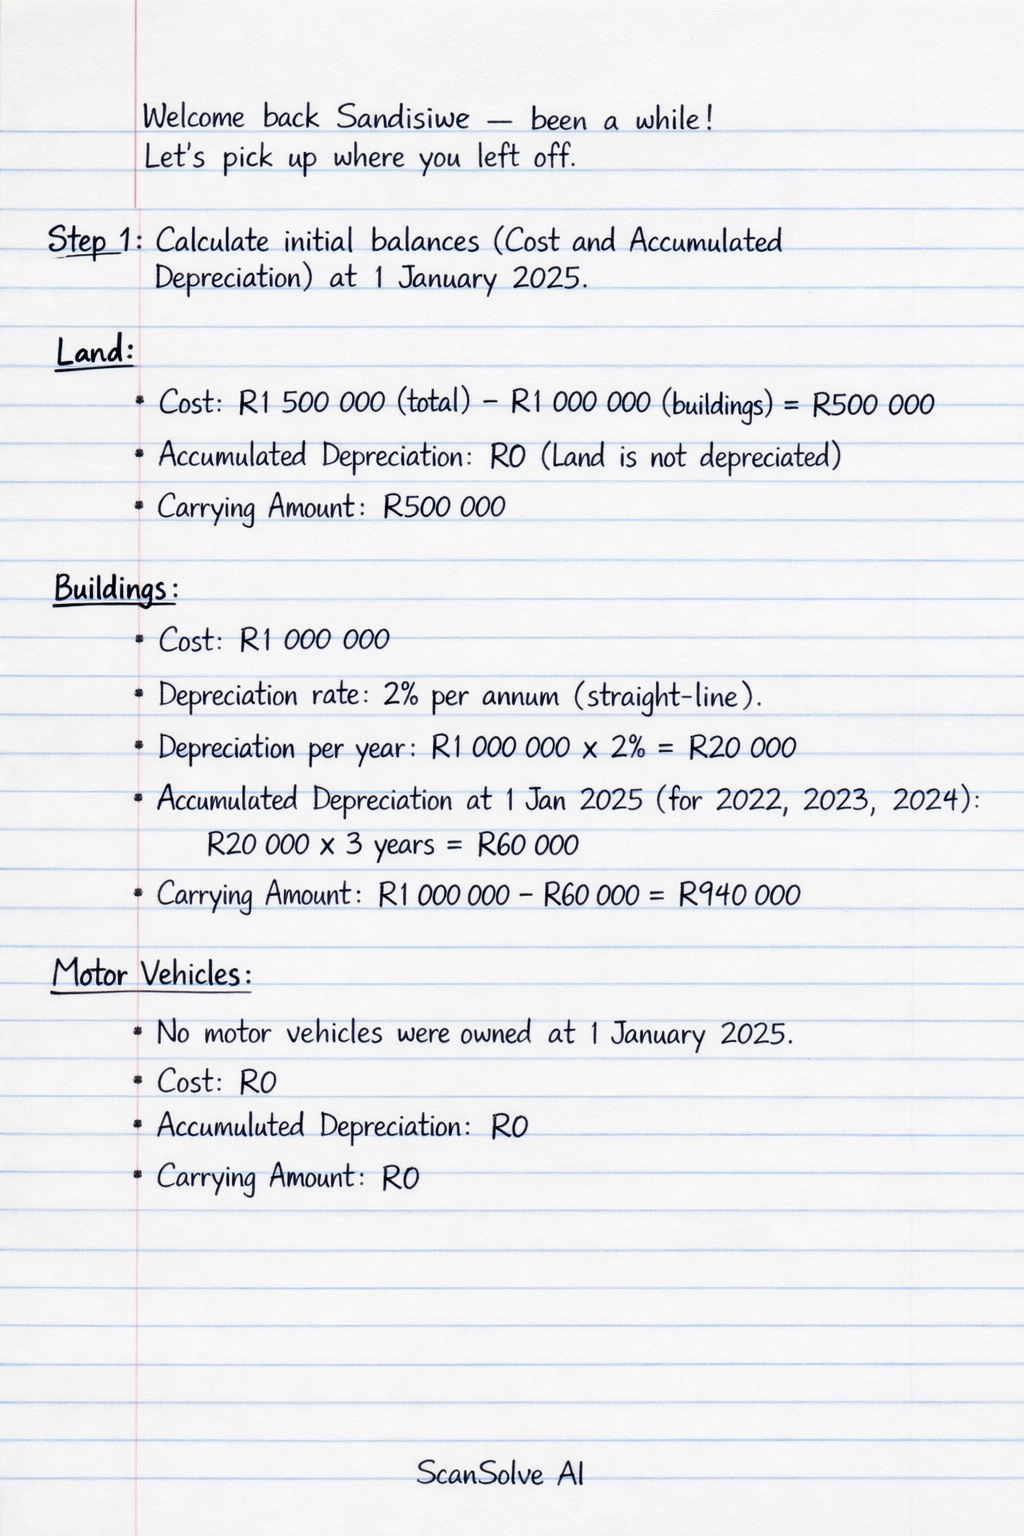 Welcome back Sandisiwe — been a while!
Let's pick up where you left off.
Step 1: Calculate initial balances (Cost and Accumulated
Depreciation) at 1 January 2025.
Land:
• Cost: R1 500 000 (total) – R1 000 000 (buildings) = R500 000
• Accumulated Depreciation: R0 (Land is not depreciated)
• Carrying Amount: R500 000
Buildings:
• Cost: R1 000 000
• Depreciation rate: 2% per annum (straight-line).
• Depreciation per year: R1 000 000 x 2% = R20 000
• Accumulated Depreciation at 1 Jan 2025 (for 2022, 2023, 2024):
R20 000 x 3 years = R60 000
• Carrying Amount: R1 000 000 – R60 000 = R940 000
Motor Vehicles:
• No motor vehicles were owned at 1 January 2025.
• Cost: R0
• Accumuluted Depreciation: R0
• Carrying Amount: R0
ScanSolve AI